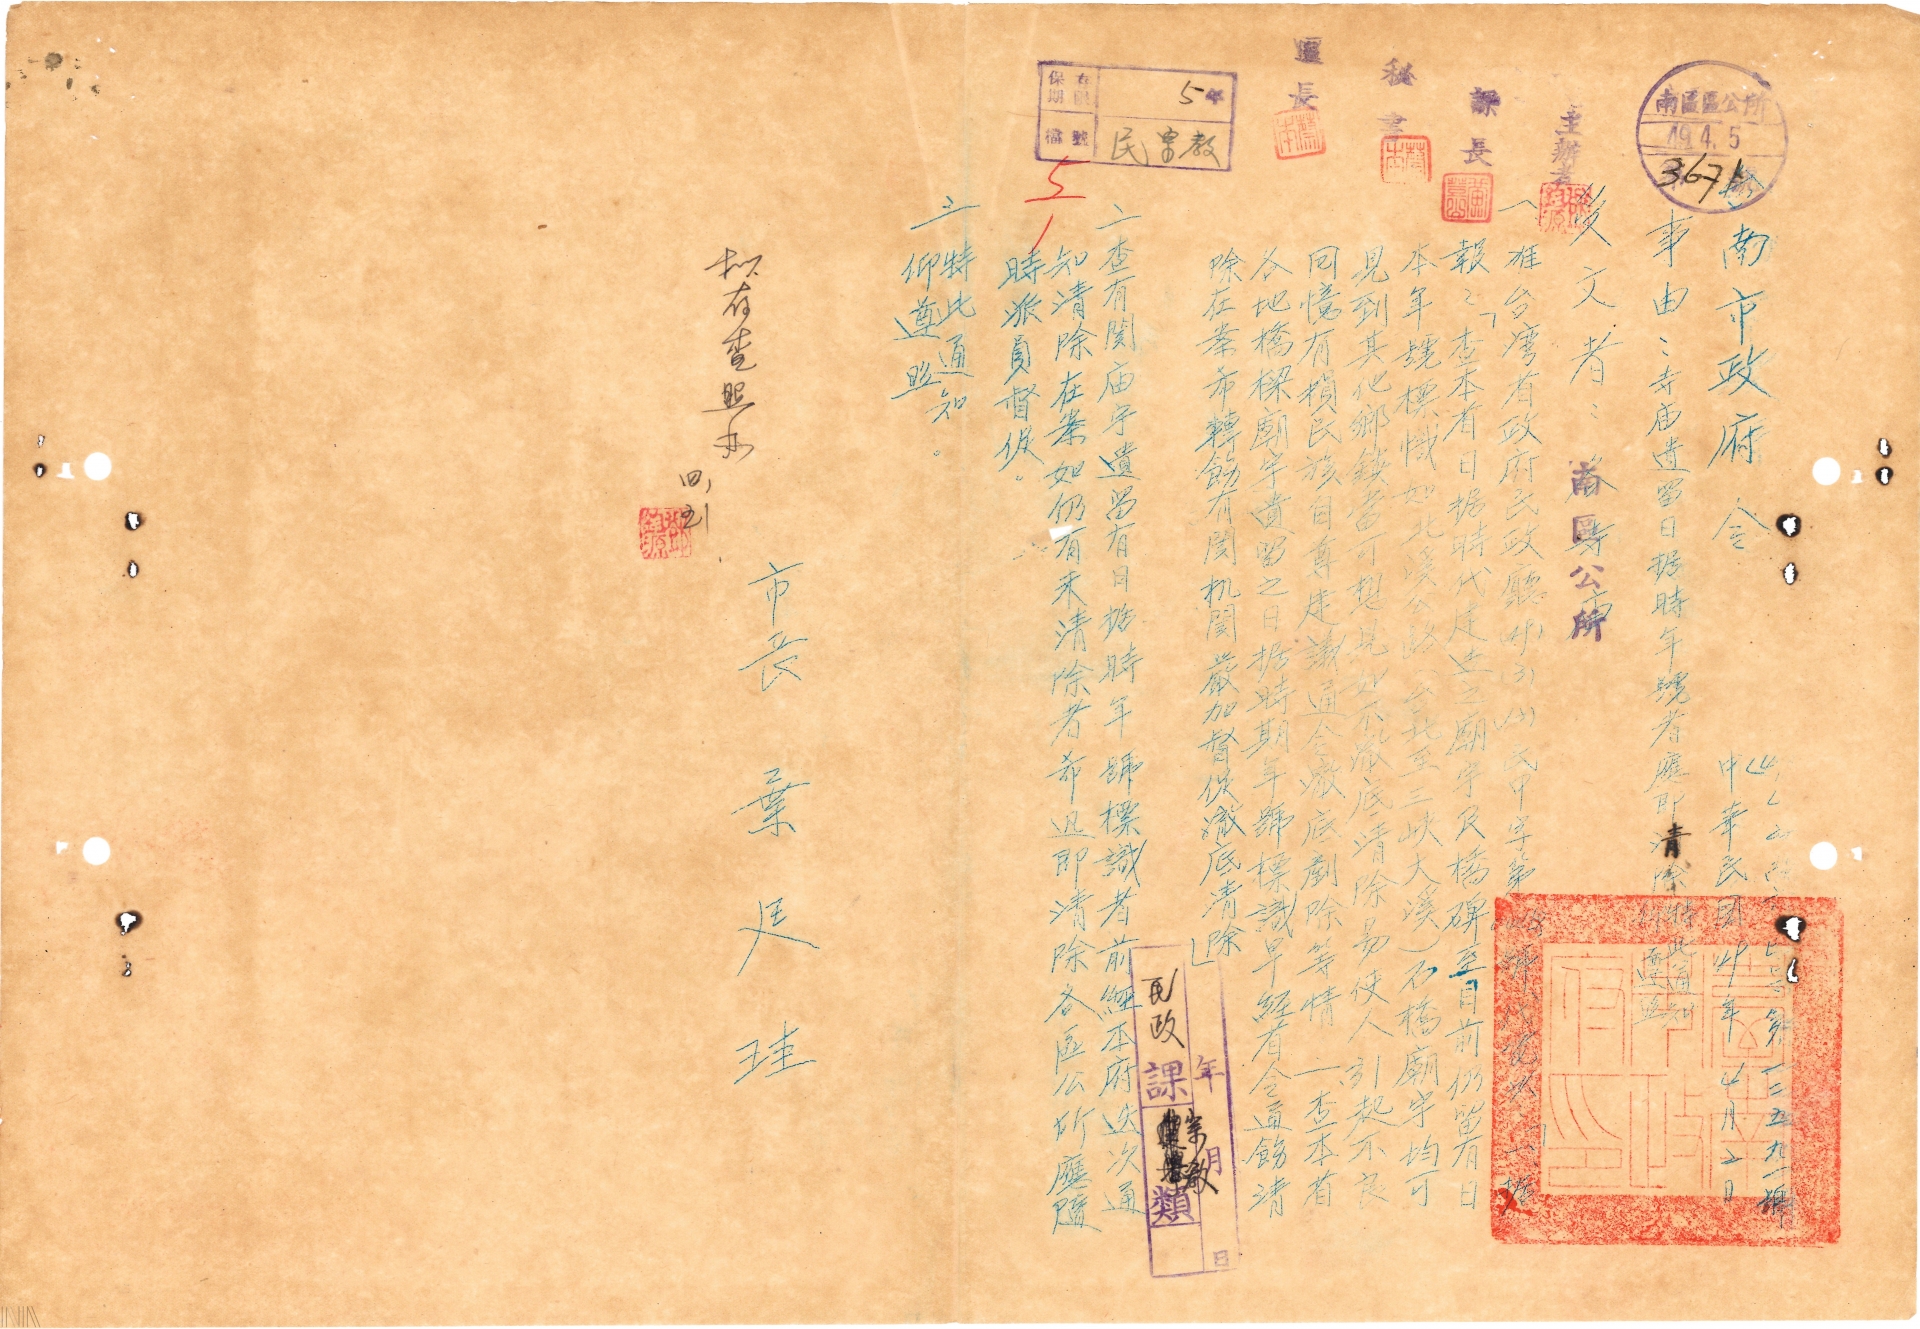 南區區公所
49.4.5
3671
主辦者
課長
秘書
區長
保存期限
5年
檔號
民宗教
台南市政府 令
中華民國49年4月2日
南市民字第一三五九一號
事由:寺庙遺留日據時年號者應即清除特此通知仰遵照
受文者:南區公所
一、准台灣省政府民政廳民甲字第號代電以「據
報:「查本省日据時代建造之廟宇及橋碑至目前仍留有日
本年號標幟如北溪公路(台北至三峽大溪)石橋廟宇均可
見到其他鄉鎮當可想見如不澈底清除易使人引起不良
回憶有損民族自尊建議通令澈底剷除等情」查本省
各地橋樑廟宇遺留之日据時期年號標識早經省令通飭清
除在案希轉飭有関机関嚴加督促澈底清除」
二、查有関庙宇遺留有日据時年號標識者前經本府迭次通
知清除在案如仍有未清除者希迅即清除各區公所應隨
時派員督促。
三、特此通知。
仰遵照
市長 葉廷珪
擬存查照办
民政課宗教類
年月日